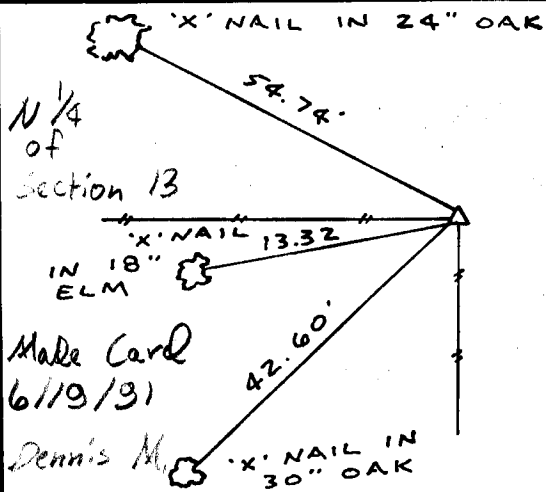 'X' NAIL IN 24" OAK
54.74'
N 1/4
of
Section 13
'X' NAIL
13.32
IN 18"
ELM
42.60'
Make Card
6/19/91
Dennis M.
'X' NAIL IN
30" OAK